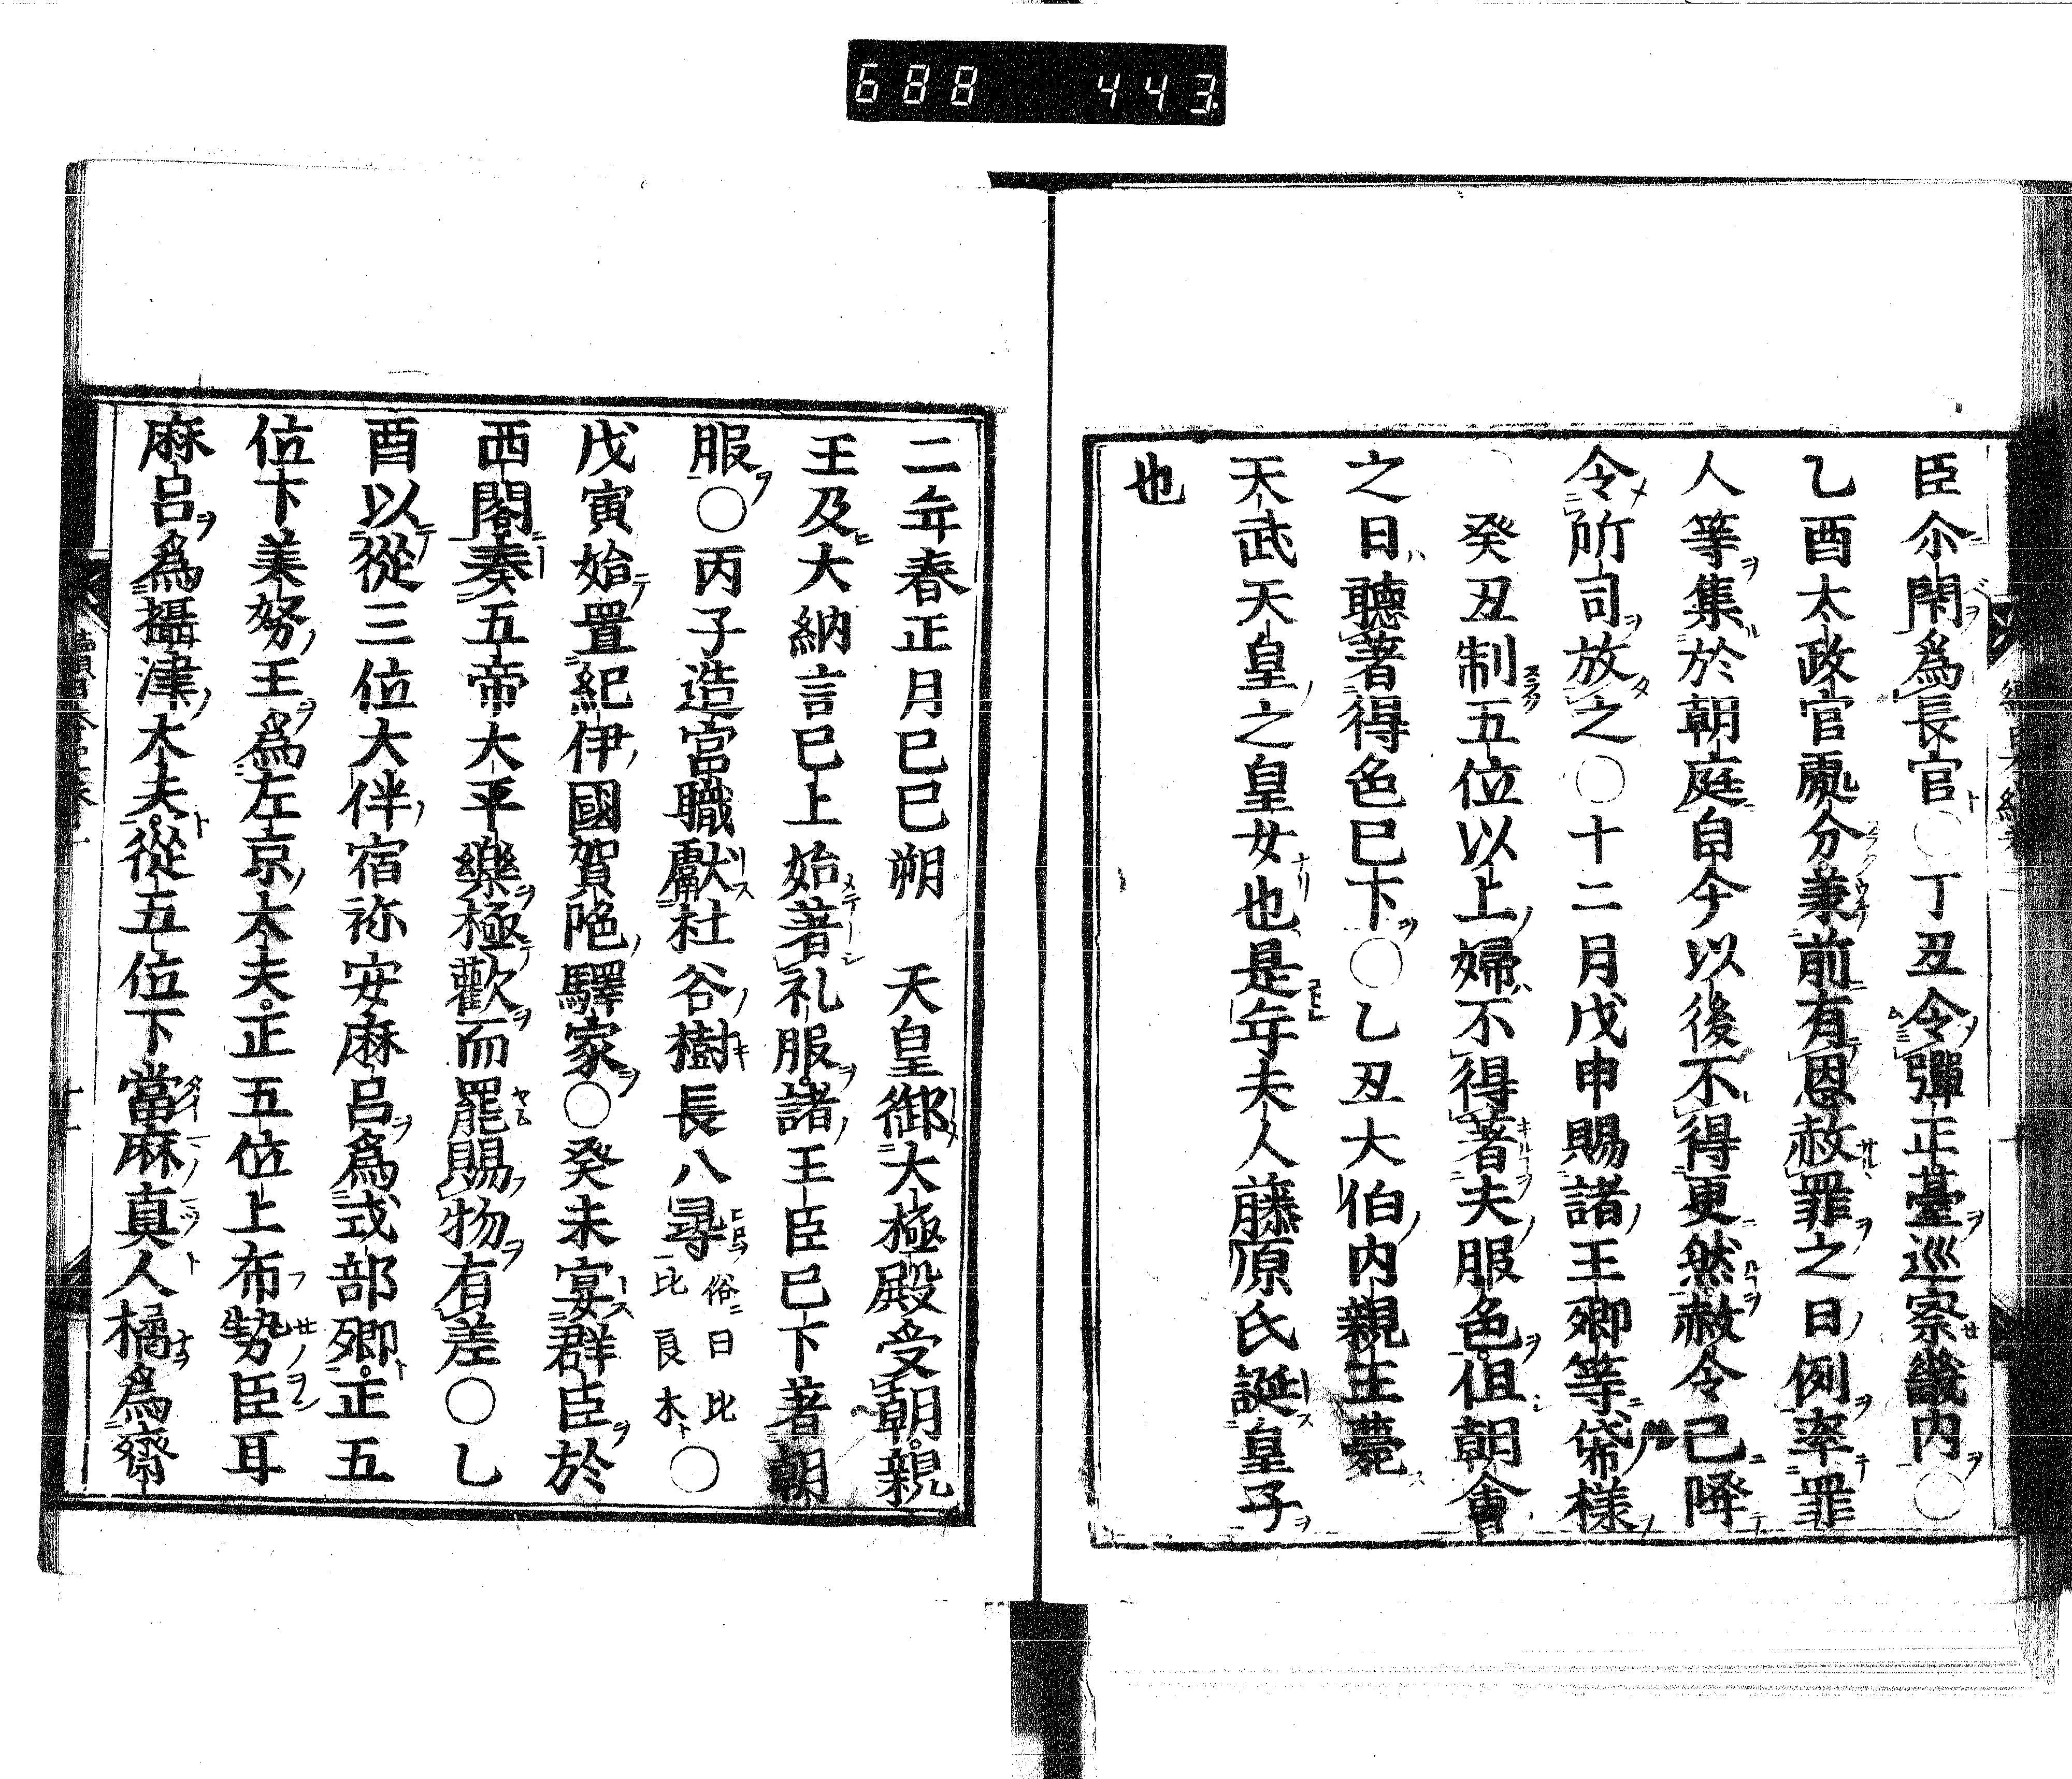 688 443
臣尒閇爲長官〇丁丑令彈正臺巡察畿内〇
乙酉太政官處分兼前有恩赦罪之日例率罪
人等集於朝庭自今以後不得更然赦令已降
令所司放之〇十二月戊申賜諸王卿等帒樣
〇癸丑制五位以上婦不得著夫服色但朝會
之日聽著得色已下〇乙丑大伯内親王薨
天武天皇之皇女也是年夫人藤原氏誕皇子
也
二年春正月己巳朔 天皇御大極殿受朝親
王及大納言已上始著礼服諸王臣已下著朝
服〇丙子造宮職獻杜谷樹長八尋俗曰比比良木〇
戊寅始置紀伊國賀陁驛家〇癸未宴群臣於
西閣奏五帝大平樂極歡而罷賜物有差〇乙
酉以從三位大伴宿祢安麻呂爲式部卿正五
位下美努王爲左京大夫正五位上布勢臣耳
麻呂爲攝津大夫從五位下當麻真人橘爲齋